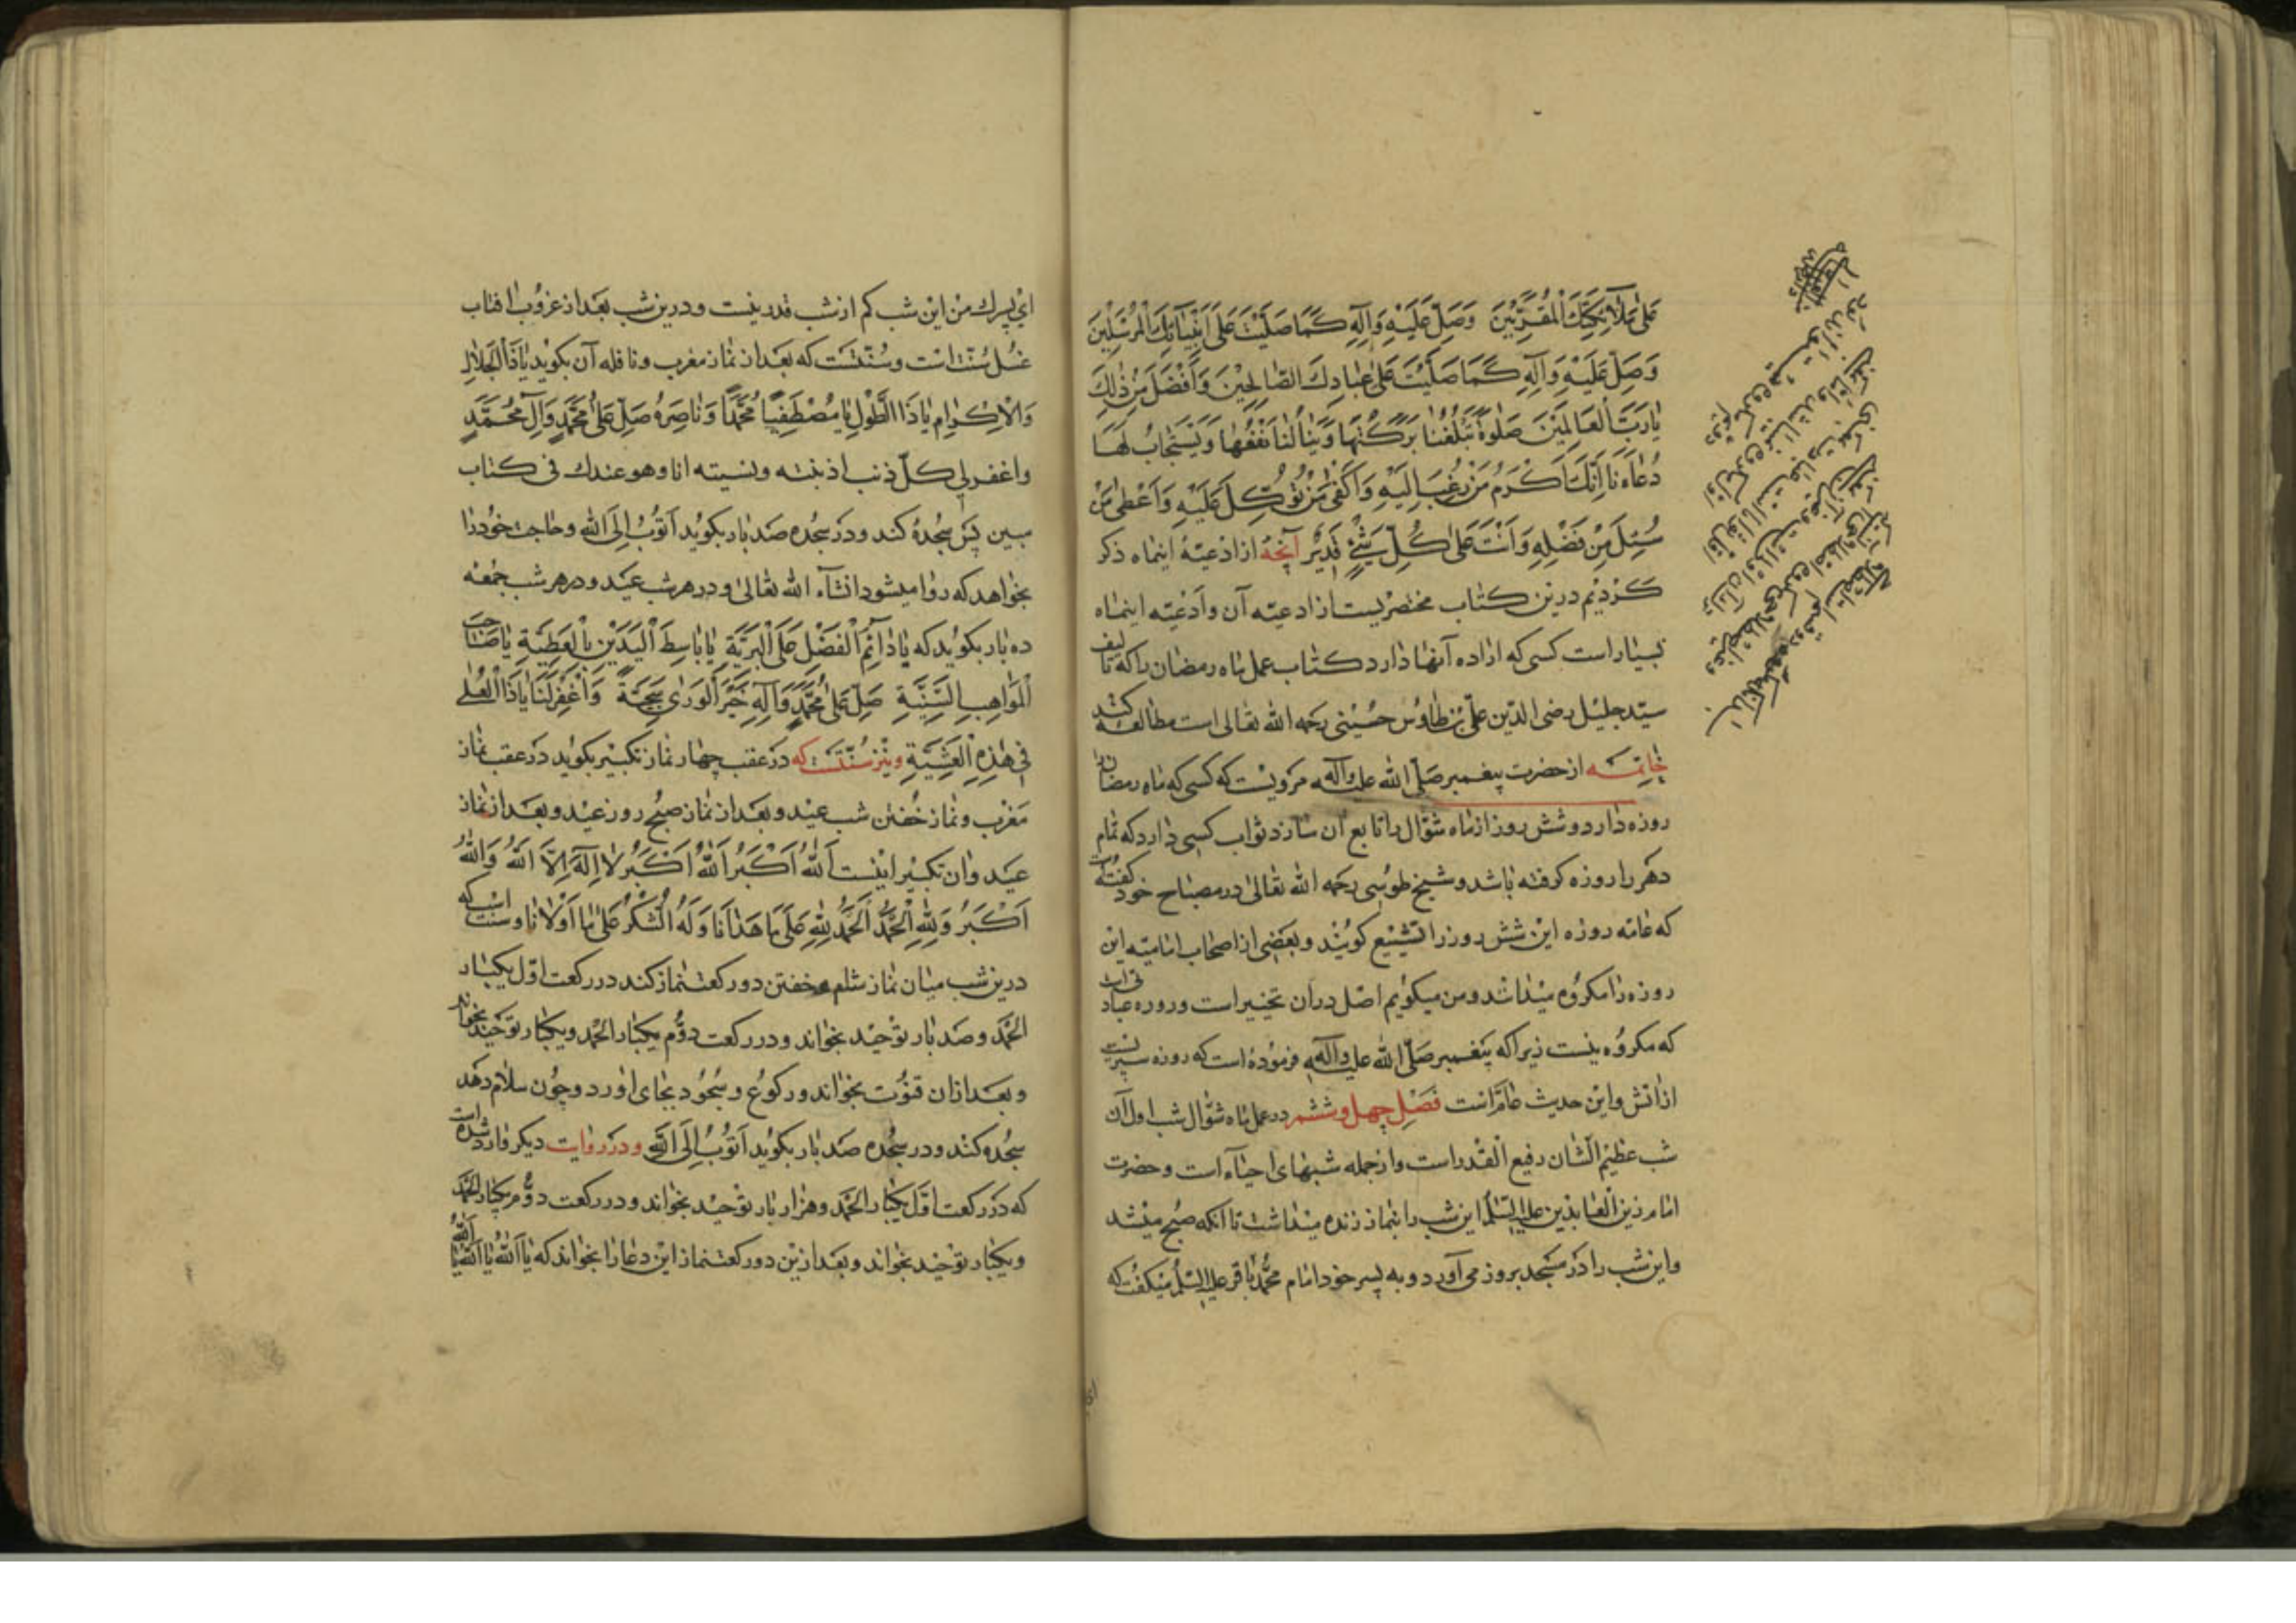 عَلى مَلآئِكَتِكَ الْمُقَرَّبِينَ وَصَلِّ عَلَيْهِ وَآلِهِ كَمَا صَلَّيْتَ عَلى أَنْبِيَائِكَ الْمُرْسَلِينَ
وَصَلِّ عَلَيْهِ وَآلِهِ كَمَا صَلَّيْتَ عَلى عِبَادِكَ الصَّالِحِينَ وَأَفْضَلَ مِنْ ذٰلِكَ
يَا رَبَّ الْعَالَمِينَ صَلٰوةً تَبْلُغُنَا بَرَكَتُهَا وَيَنَالُنَا نَفْعُهَا وَيُسْتَجَابُ لَهَا
دُعَاؤنَا إِنَّكَ أَكْرَمُ مَنْ رُغِبَ إِلَيْهِ وَأَكْفى مَنْ تُوُكِّلَ عَلَيْهِ وَأَعْطى مَنْ
سُئِلَ مِنْ فَضْلِهِ وَأَنْتَ عَلى كُلِّ شَيْءٍ قَدِيرٌ آنچه از ادعیهٔ اینماه ذکر
کردیم درین کتاب مختصریست از ادعیه آن و ادعیه اینماه
بسیار است کسی که اراده آنها دارد کتاب عمل ماه رمضان را که تالیف
سید جلیل رضی الدین علی بن طاوس حسینی رحمه الله تعالی است مطالعه کند
خاتمه از حضرت پیغمبر صلی الله علیه وآله مرویست که کسی که ماه رمضان را
روزه دارد و شش روز از ماه شوال را تابع آن سازد ثواب کسی دارد که تمام
دهر را روزه گرفته باشد و شیخ طوسی رحمه الله تعالی در مصباح خود گفته است
که عامه روزه این شش روز را تشییع گویند و بعضی از اصحاب امامیه این
روزه را مکروه میداشتد و من میگویم اصل دران تخییر است و روزه عبادتی است
که مکروه نیست زیرا که پیغمبر صلی الله علیه وآله فرموده است که روزه سپریست
از آتش و این حدیث عامّ است فصل چهل و ششم در عمل ماه شوال شب اول آن
شب عظیم الشان رفیع القدر است و از جمله شبهای احیاء است و حضرت
امام زین العابدین علیه السلام این شب را بنماز زنده میداشت تا آنکه صبح میشد
و این شب را در مسجد بروز می آورد و به پسر خود امام محمد باقر علیه السلم میگفت که
ای پسرک من این شب کم از شب قدر نیست و درین شب بعد از غروب افتاب
غسل سنت است و سنتست که بعد از نماز مغرب و نافله آن بکوید یَا ذَا الْجَلَالِ
وَالْاِكْرَامِ يَا ذَا الطَّوْلِ يَا مُصْطَفِيًا مُحَمَّدًا وَنَاصِرَهُ صَلِّ عَلى مُحَمَّدٍ وَآلِ مُحَمَّدٍ
واغفر لی کلّ ذنب اذنبته ونسیته انا وهو عندك فی کتاب
مبین پس سجده کند و در سجده صد بار بکوید اَتُوبُ اِلَى اللهِ و حاجت خود را
بخواهد که روا میشود انشآء الله تعالی و در هر شب عید و در هر شب جمعه
ده بار بکوید که يَا دَائِمَ الْفَضْلِ عَلَى الْبَرِيَّةِ يَا بَاسِطَ الْيَدَيْنِ بِالْعَطِيَّةِ يَا صَاحِبَ
الْمَوَاهِبِ السَّنِيَّةِ صَلِّ عَلى مُحَمَّدٍ وَآلِهِ خَيْرِ الْوَرى سَجِيَّةً وَاغْفِرْ لَنَا يَا ذَا الْعُلى
فِي هٰذِهِ الْعَشِيَّةِ و نیز سنتست که در عقب چهار نماز تکبیر بکوید در عقب نماز
مغرب و نماز خفتن شب عید و بعد از نماز صبح روز عید و بعد از نماز
عید و ان تکبیر اینست اَللهُ اَكْبَرُ اَللهُ اَكْبَرُ لَا اِلٰهَ اِلَّا اللهُ وَاللهُ
اَكْبَرُ وَلِلّٰهِ الْحَمْدُ اَلْحَمْدُ لِلّٰهِ عَلى مَا هَدَانَا وَلَهُ الشُّكْرُ عَلى مَا اَوْلَانَا و سنت است که
درین شب میان نماز شام و خفتن دو رکعت نماز کند در رکعت اول یکبار
الحمد و صد بار توحید بخواند و در رکعت دوّم یکبار الحمد و یکبار توحید بخواند
و بعد ازان قنوت بخواند و رکوع و سجود بجای اورد و چون سلام دهد
سجده کند و در سجده صد بار بکوید اَتُوبُ اِلَى اللهِ و در روایت دیگر وارد شده است
که در رکعت اول یکبار الحمد و هزار بار توحید بخواند و در رکعت دوّم یکبار الحمد
و یکبار توحید بخواند و بعد ازین دو رکعت نماز این دعا را بخواند که یا اَللهُ یا اَللهُ یا اَللهُ